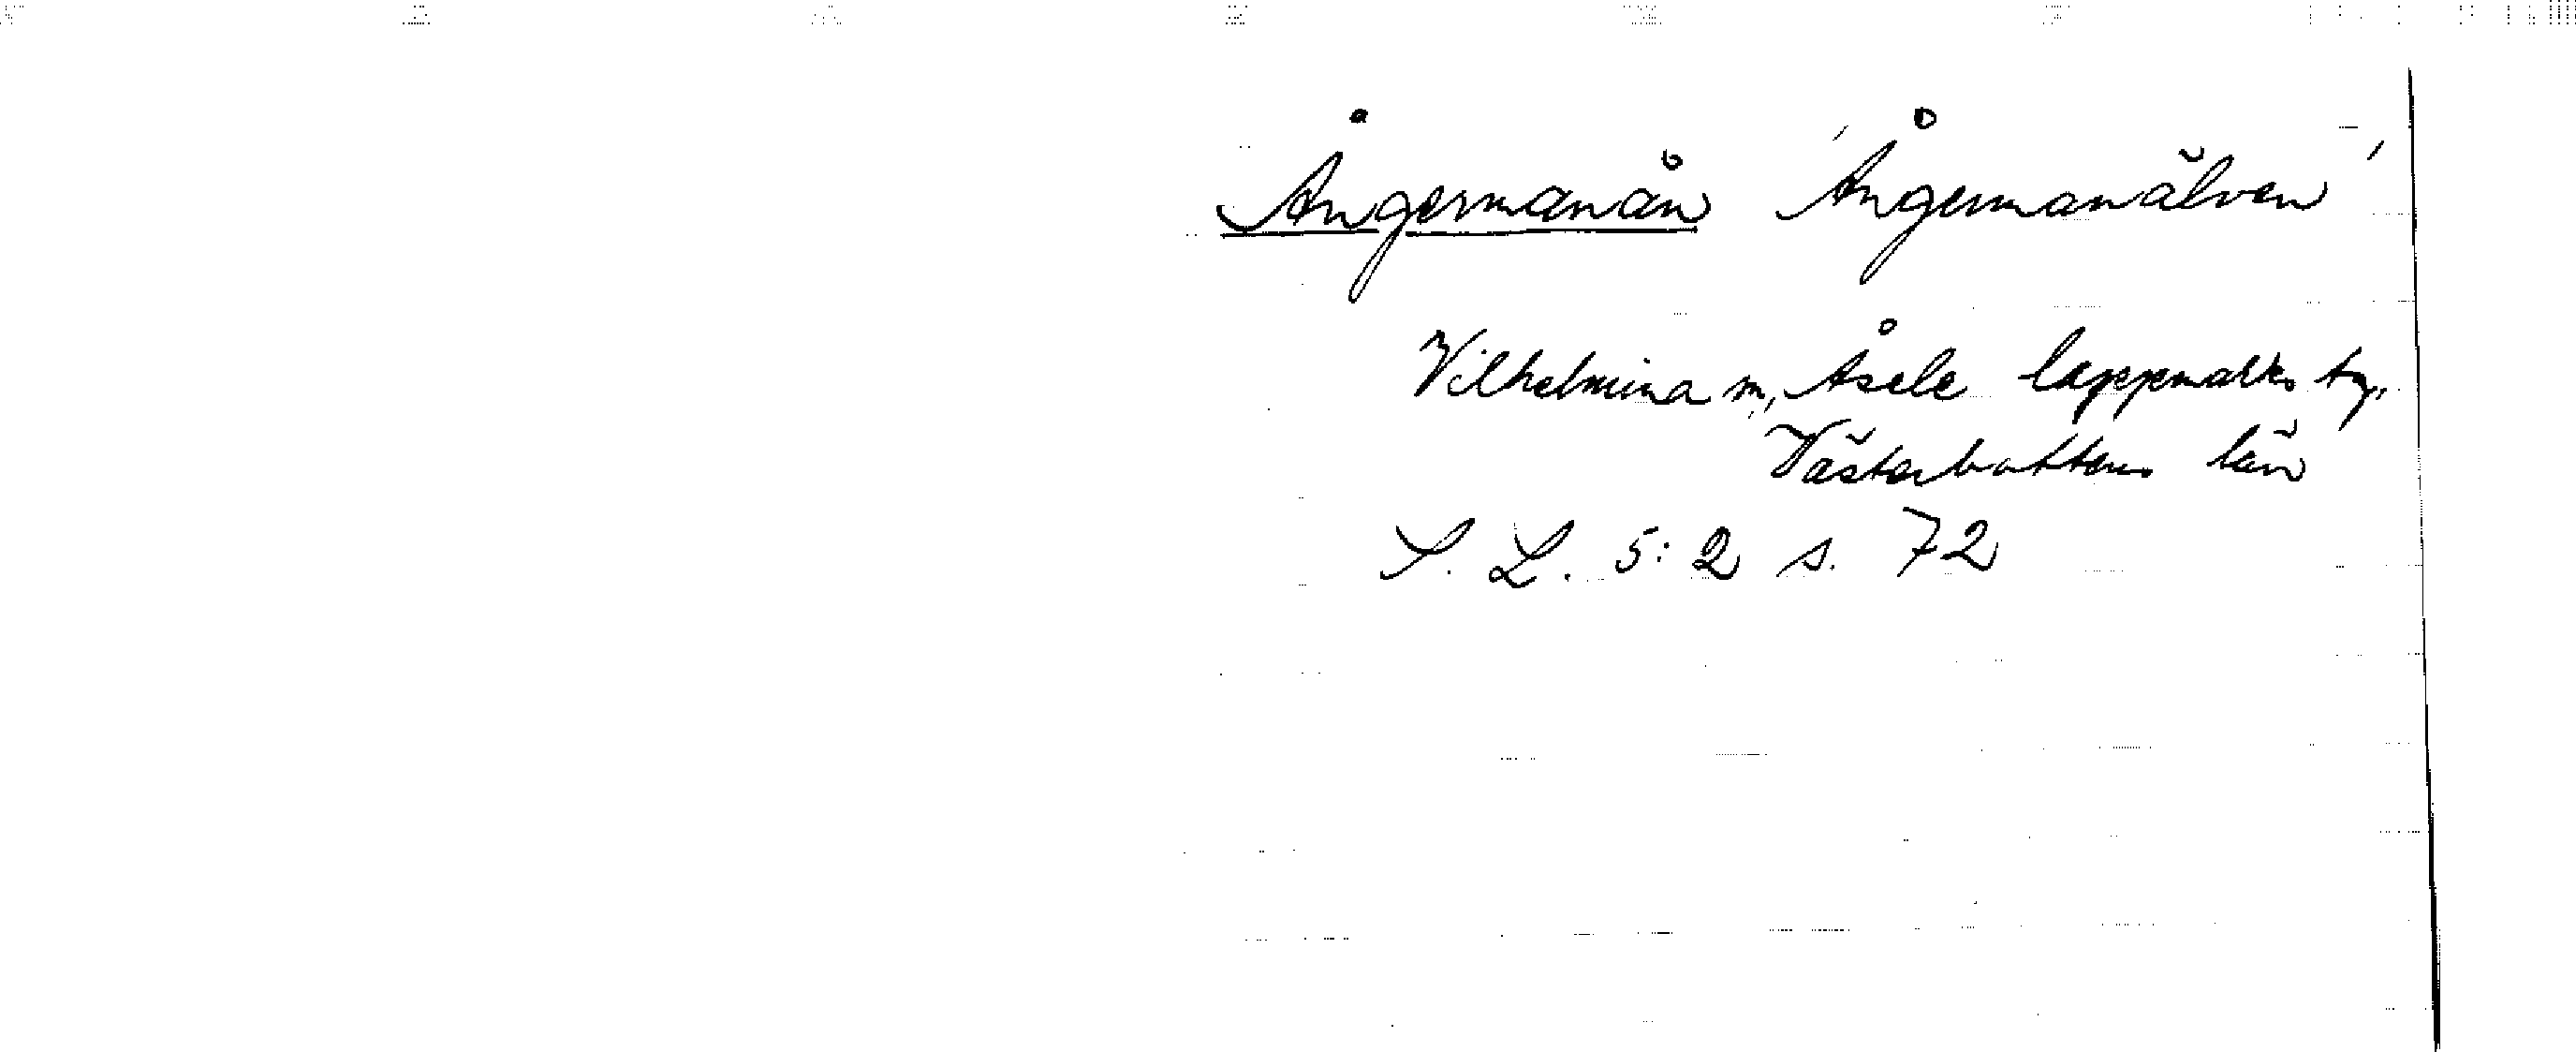 Ångermanån 'Ångermanälven'
Vilhelmina sn, Åsele lappmarks tg,
Västerbottens län
S. L. 5:2 s. 72